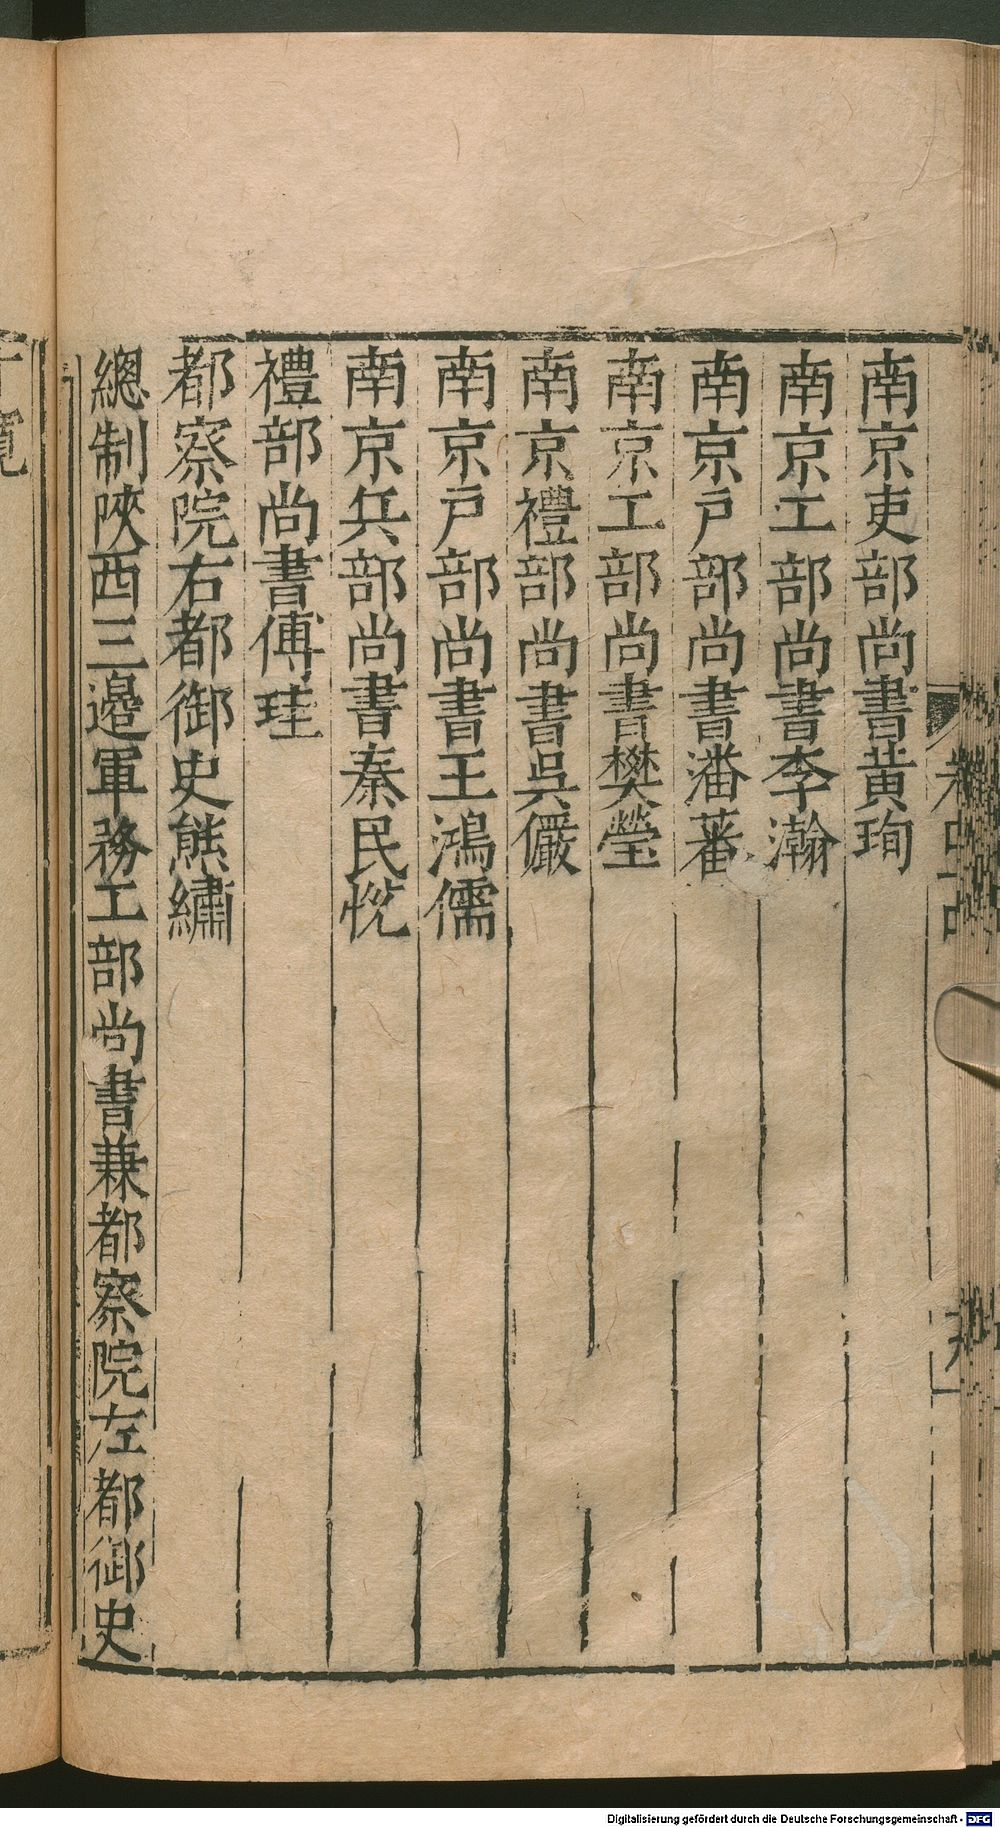 南京吏部尚書黄珣
南京工部尚書李瀚
南京戸部尚書潘蕃
南京工部尚書樊瑩
南京禮部尚書吳儼
南京戸部尚書王鴻儒
南京兵部尚書秦民悅
禮部尚書傅珪
都察院右都御史熊繡
總制陜西三邉軍務工部尚書兼都察院左都御史
Digitalisierung gefördert durch die Deutsche Forschungsgemeinschaft - DFG